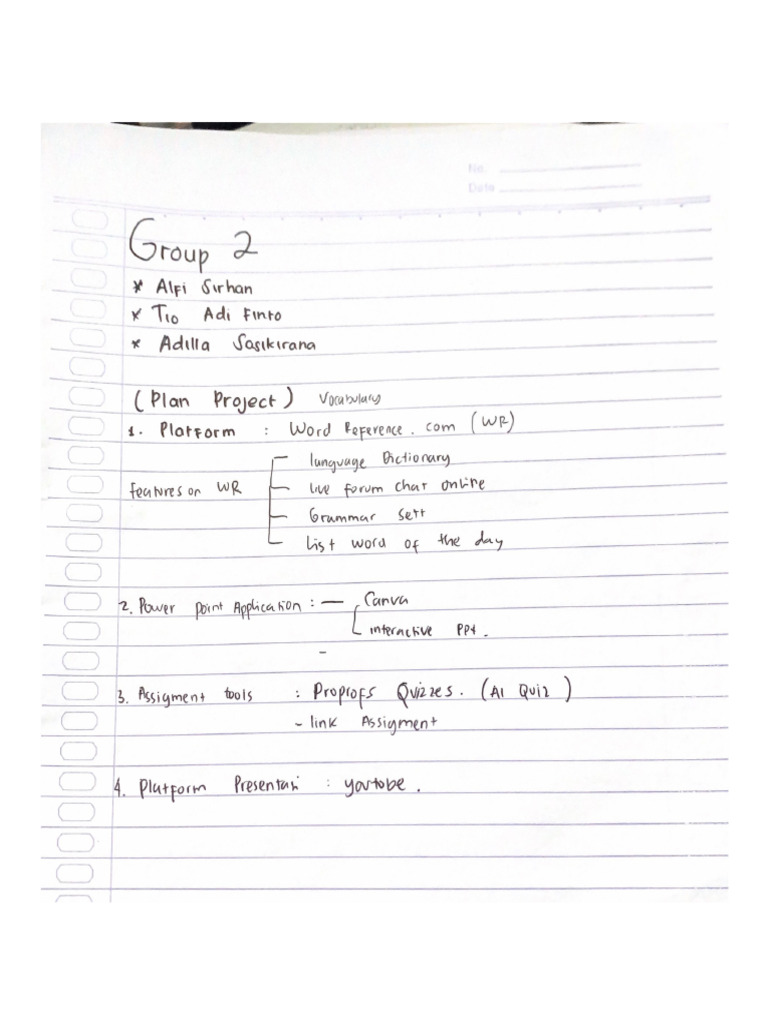 No.
Date
Group 2
* Alfi Sirhan
* Tio Adi Finto
* Adilla Sasikirana
(Plan Project) Vocabulary
1. Platform : Word Reference.com (WR)
language Dictionary
features on WR
live forum chat online
Grammar sett
List word of the day
2. Power point Application : — Canva
interactive PPt.
-
3. Assigment tools : Proprofs Quizzes. (AI Quiz)
- link Assigment
4. Platform Presentasi : yowtobe.